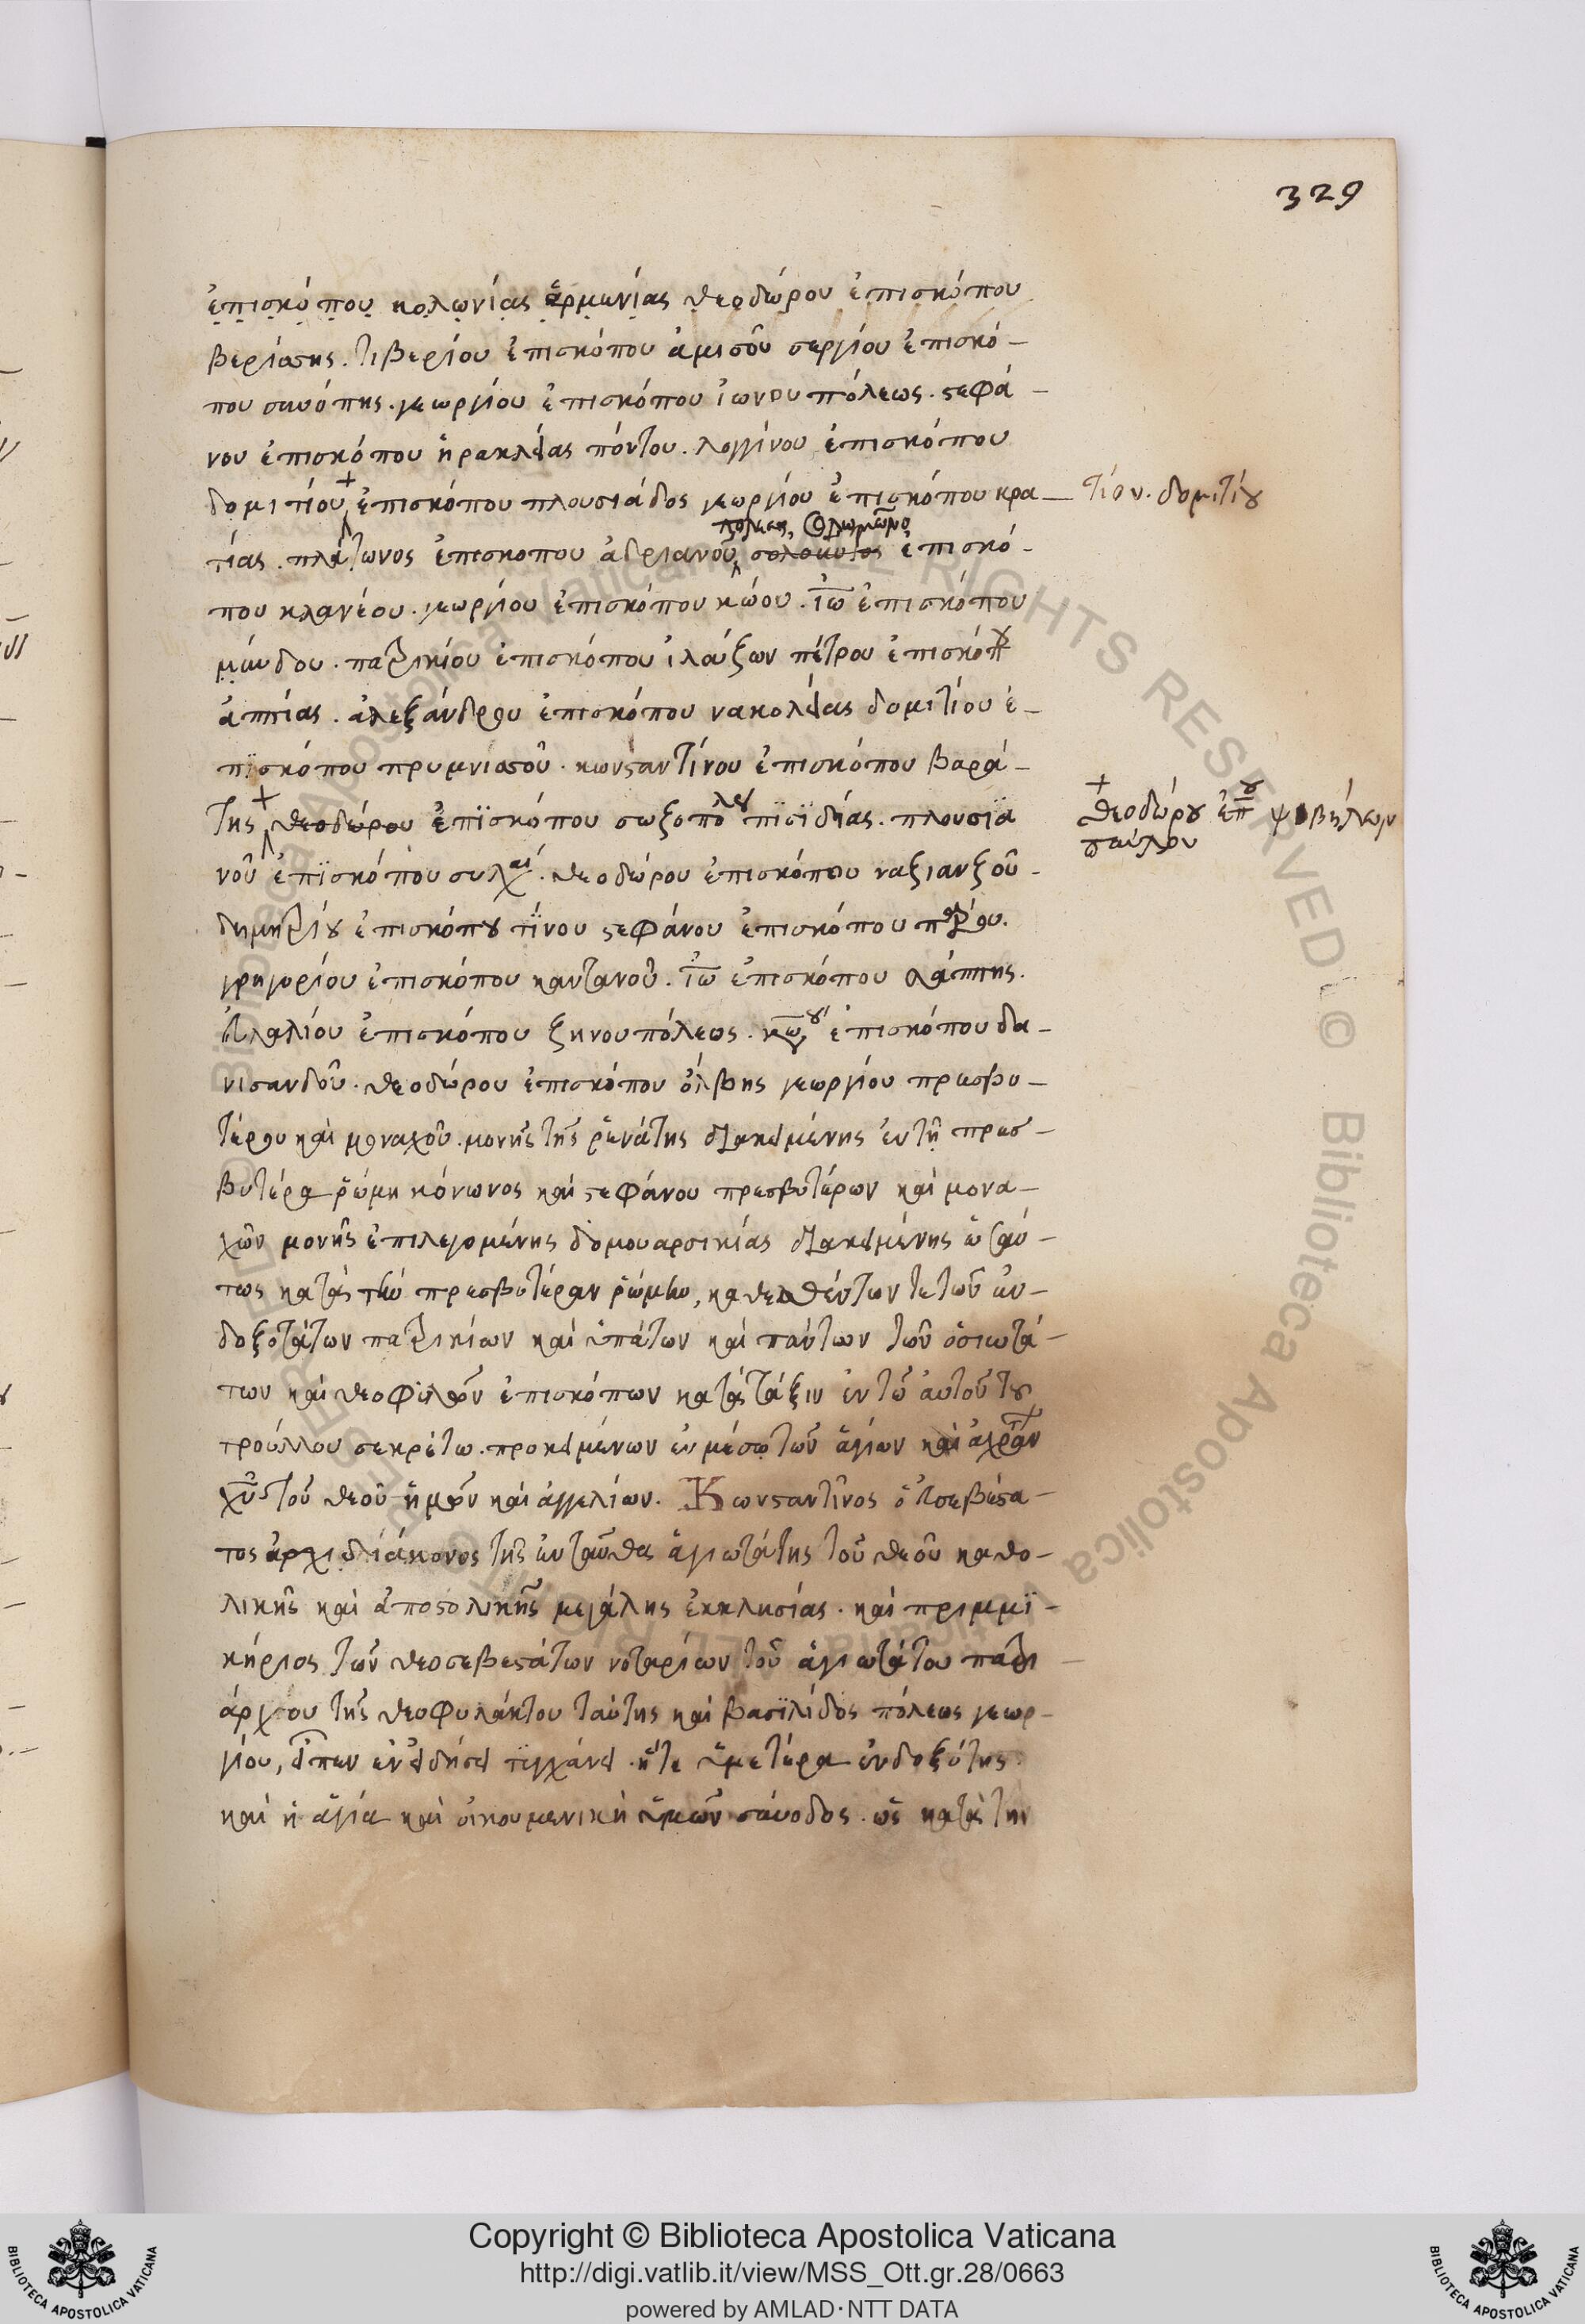 329
ἐπισκόπου κολωνίας ἀρμενίας θεοδώρου ἐπισκόπου
βερίασης. τιβερίου ἐπισκόπου ἀμισοῦ σεργίου ἐπισκό-
που σινόπης. γεωργίου ἐπισκόπου ἰωνουπόλεως. στεφά-
νου ἐπισκόπου ἡρακλείας πόντου. λογγίνου ἐπισκόπου
δομιτίου ἐπισκόπου πλουσιάδος γεωργίου ἐπισκόπου κρα- τίον. δομιτίου
τίας. πλάτωνος ἐπισκοπου ἀδριανοῦ ἐπισκό-
που κλανέου. γεωργίου ἐπισκόπου κώου. ἰω ἐπισκόπου
μίνδου. πατρικίου ἐπισκόπου ἰλούζων πέτρου ἐπισκόπου
ἀππίας. ἀλεξάνδρου ἐπισκόπου νακολείας δομιτίου ἐ-
πϊσκόπου πρυμνισοῦ. κωνσταντίνου ἐπισκόπου βαρά-
της θεοδώρου ἐπϊσκόπου σωζοπόλου πϊσϊδίας. πλουσϊα
+ θεοδώρου ἐπου ψιβήλων
παύλου
νοῦ ἐπϊσκόπου συλαι. θεοδώρου ἐπισκόπου ναζιανζοῦ-
δημητρίου ἐπισκόπου τίνου στεφάνου ἐπισκόπου
γρηγορίου ἐπισκόπου καντανοῦ. ἰω ἐπισκόπου λάππης.
ἐπισκόπου ζηνουπόλεως. ἐπισκόπου δα-
λισανδοῦ. θεοδώρου ἐπισκόπου ὄλβης γεωργίου πρεσβυ-
τέρου καὶ μοναχοῦ. μονῆς τῆς ῥενάτης διακειμένης ἐν τῇ πρεσ-
βυτέρα ῥώμη κόνωνος καὶ στεφάνου πρεσβυτέρων καὶ μονα-
χῶν μονῆς ἐπιλεγομένης δομουαρσικίας διακειμένης ὡσαύ-
τως κατὰ τὴν πρεσβυτέραν ῥώμην, καθεσθέντων τε τῶν ἐν-
δοξοτάτων πατρικίων καὶ ὑπάτων καὶ πάντων τῶν ὁσιωτά-
των καὶ θεοφιλῶν ἐπισκόπων κατὰ τάξιν ἐν τῶ αὐτοῦ του
τρούλλου σεκρέτω. προκειμένων ἐν μέσω τῶν ἁγίων καὶ ἀχράν
χυ τοῦ θεοῦ ἡμῶν καὶ ἀγγελίων. Κωνσταντῖνος ὁ εὐσεβέστα-
τος ἀρχιδιάκονος τῆς ἐνταῦθα ἁγιωτάτης τοῦ θεοῦ καθο-
λικῆς καὶ ἀποστολικῆς μεγάλης ἐκκλησίας. καὶ πριμμϊ-
κήριος τῶν θεοσεβεστάτων νοταρίων τοῦ ἁγιωτάτου πατρι
άρχου τῆς θεοφυλάκτου ταύτης καὶ βασϊλίδος πόλεως γεωρ-
γίου, εἶπεν ἐν εἰδήσει τϋγχάνει. ἥτε ὑμετέρα ἐνδοξότης.
καὶ ἡ ἁγία καὶ οἰκουμενικὴ ὑμῶν σύνοδος. ὡς κατὰ τὴν
Copyright © Biblioteca Apostolica Vaticana
http://digi.vatlib.it/view/MSS_Ott.gr.28/0663
powered by AMLAD·NTT DATA